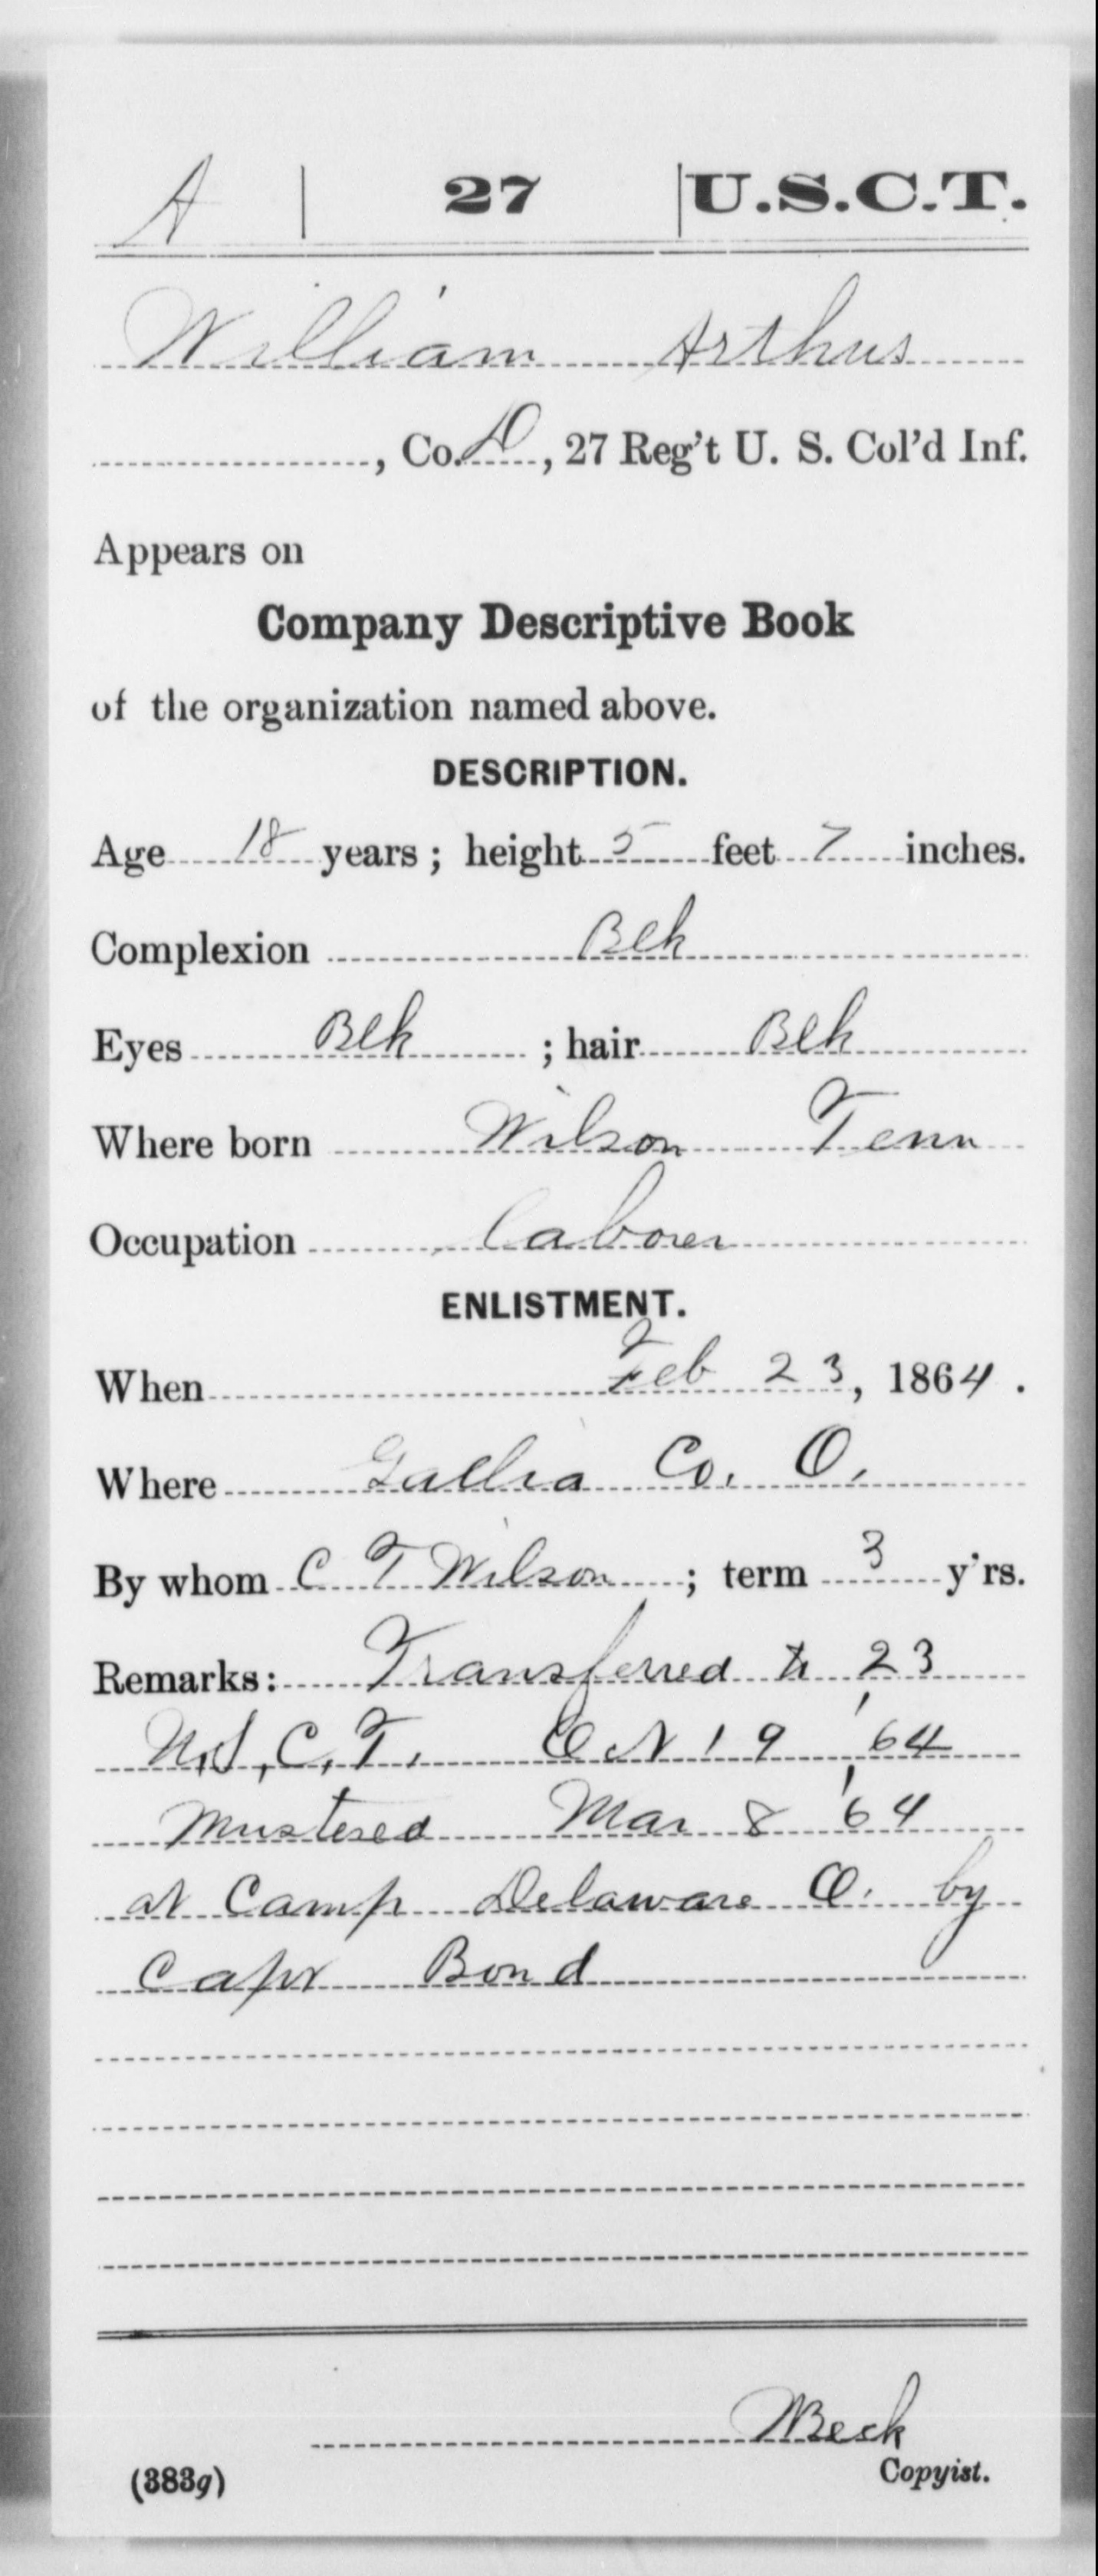 A | 27 | U.S.C.T.
William Arthur
, Co. D, 27 Reg't U. S. Col'd Inf.
Appears on
Company Descriptive Book
of the organization named above.
DESCRIPTION.
Age 18 years; height 5 feet 7 inches.
Complexion Blk
Eyes Blk; hair Blk
Where born Wilson Tenn
Occupation Laborer
ENLISTMENT.
When Feb 23, 1864.
Where Gallia Co. O.
By whom C T Wilson; term 3 y'rs.
Remarks: Transferred to 23
U.S.C.T. Oct 19, '64
Mustered Mar 8 '64
at Camp Delaware O. by
Capt Bond
Beck
(383g) Copyist.